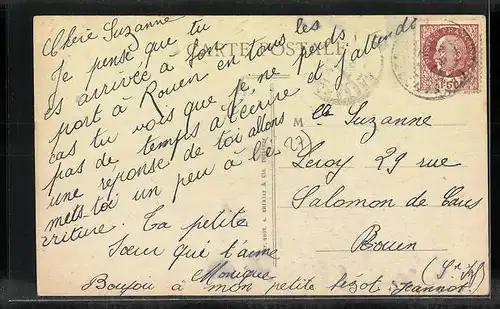 Chère Suzanne
Je pense que tu
es arrivée à bon
port à Rouen en tous les
cas tu vois que je ne perds
pas de temps à t'écrire et j'attends
une réponse de toi allons
mets toi un peu à l'é
criture. Ta petite
Sœur qui t'aime
Monique
Boujou à mon petite bézot. Jeannot
CARTE POSTALE
M
lle Suzanne
Leroy 29 rue
Salomon de Caus
Rouen
(S. Inf)
(27)